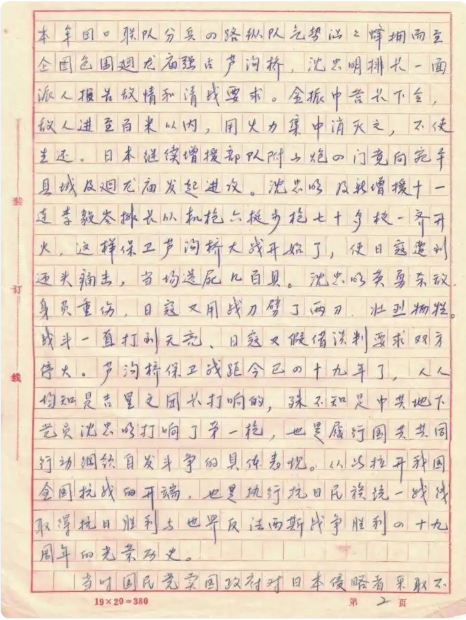 本牟田口联队分兵四路纵队气势汹汹蜂拥而至
企图包围迴龙庙强占芦沟桥，沈忠明排长一面
派人报告敌情和请战要求。金振中营长下令，
敌人进至百米以内，用火力集中消灭之，不使
生还。日本继续增援部队附山炮四门竟向宛平
县城及迴龙庙发起进攻。沈忠明及我增援十一
连李毅岑排长以机枪六挺步枪七十多枝一齐开
火，这样保卫芦沟桥大战开始了，使日寇遭到
迎头痛击，当场遗尸几百具。沈忠明英勇杀敌
身负重伤，日寇又用战刀劈了两刀，壮烈牺牲。
战斗一直打到天亮，日寇又假借谈判要求双方
停火。芦沟桥保卫战距今已四十九年了，人人
均知是吉星文团长打响的，殊不知是中共地下
党员沈忠明打响了第一枪，也是履行国共共同
行动纲领自发斗争的具体表现。从此拉开我国
全国抗战的开端，也是执行抗日民族统一战线
取得抗日胜利与世界反法西斯战争胜利四十九
周年的光荣历史。
当时国民党卖国政府对日本侵略者采取不
装
订
线
19×20=380
第 2 页